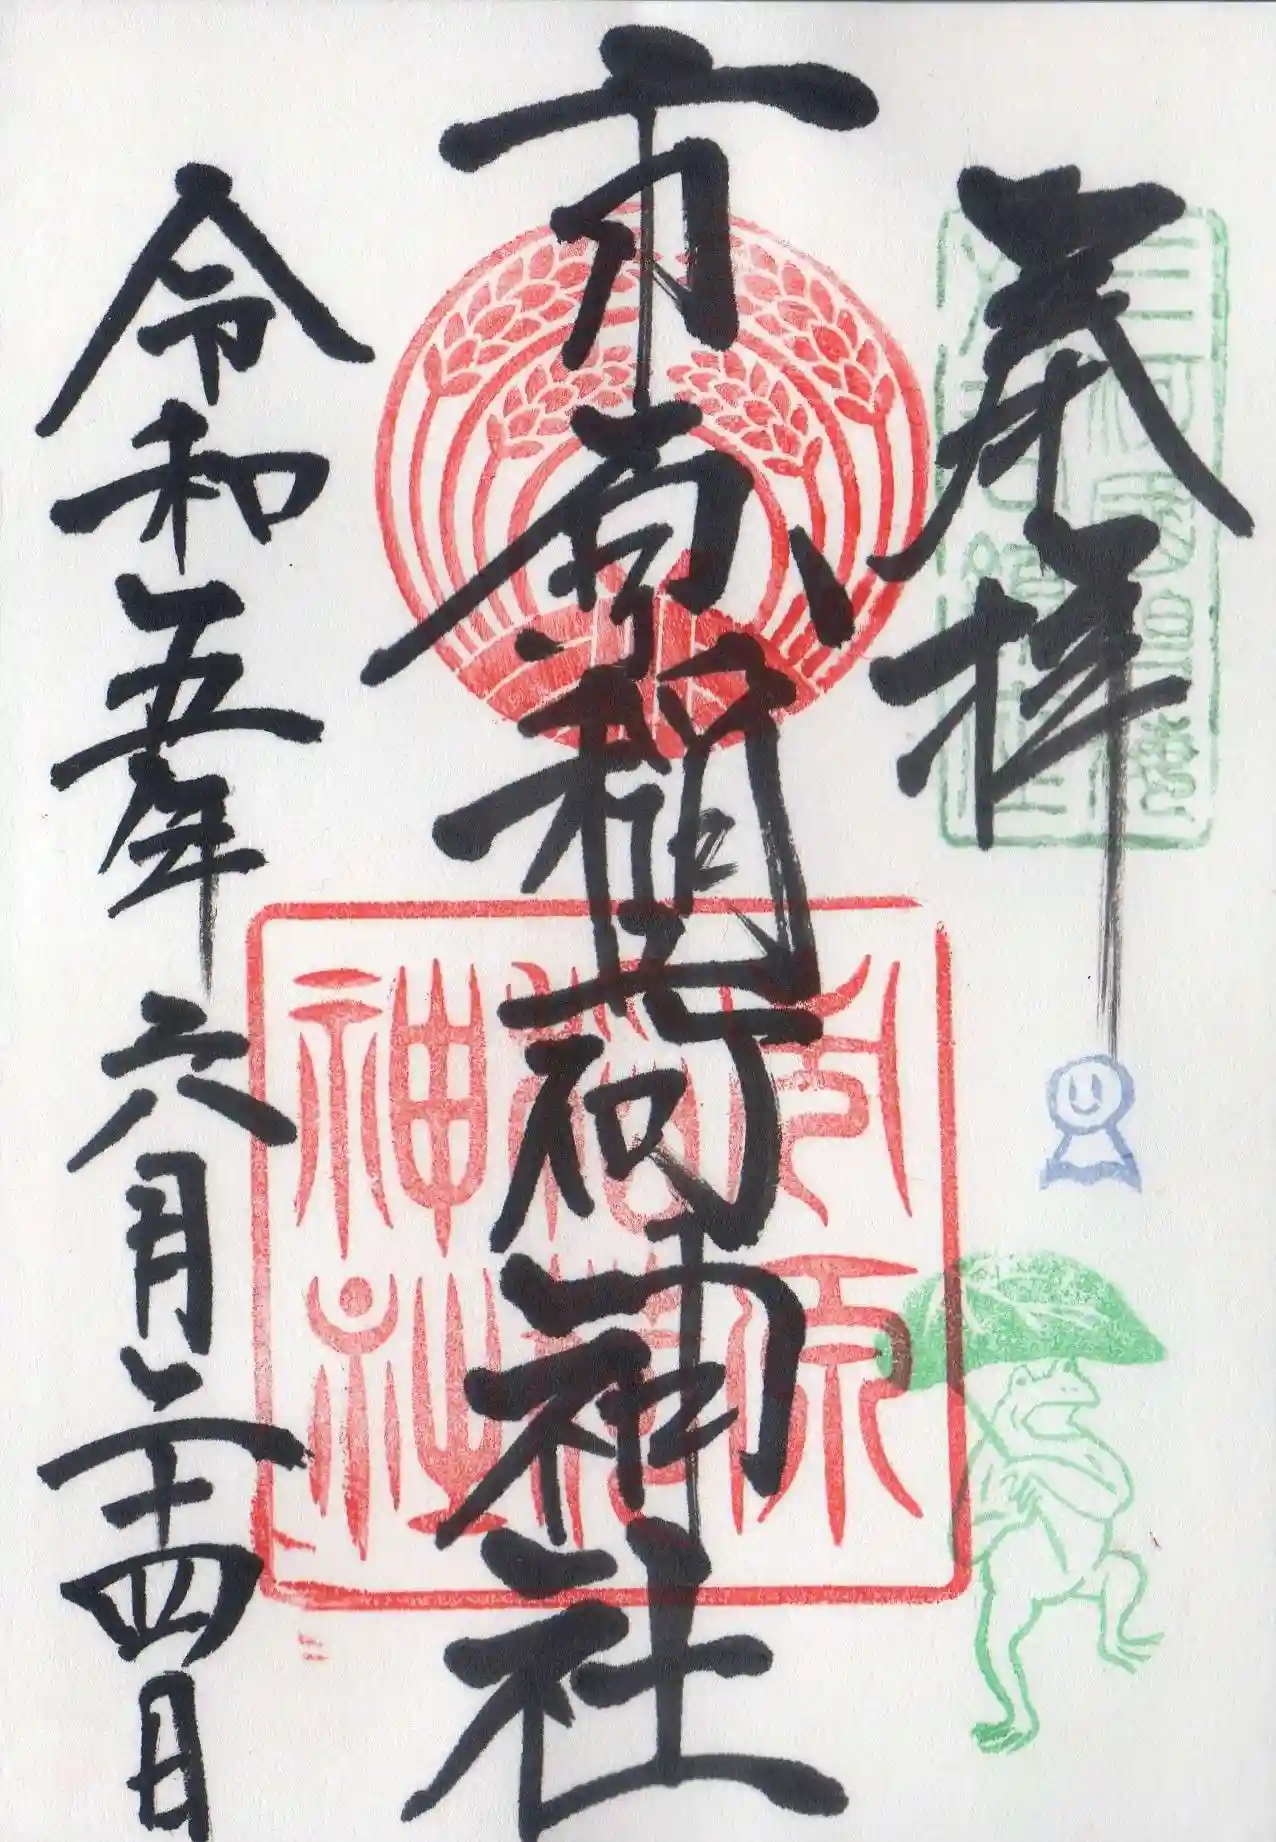 奉拝
市原稲荷神社
令和五年六月二十四日
市原
稲荷
神社